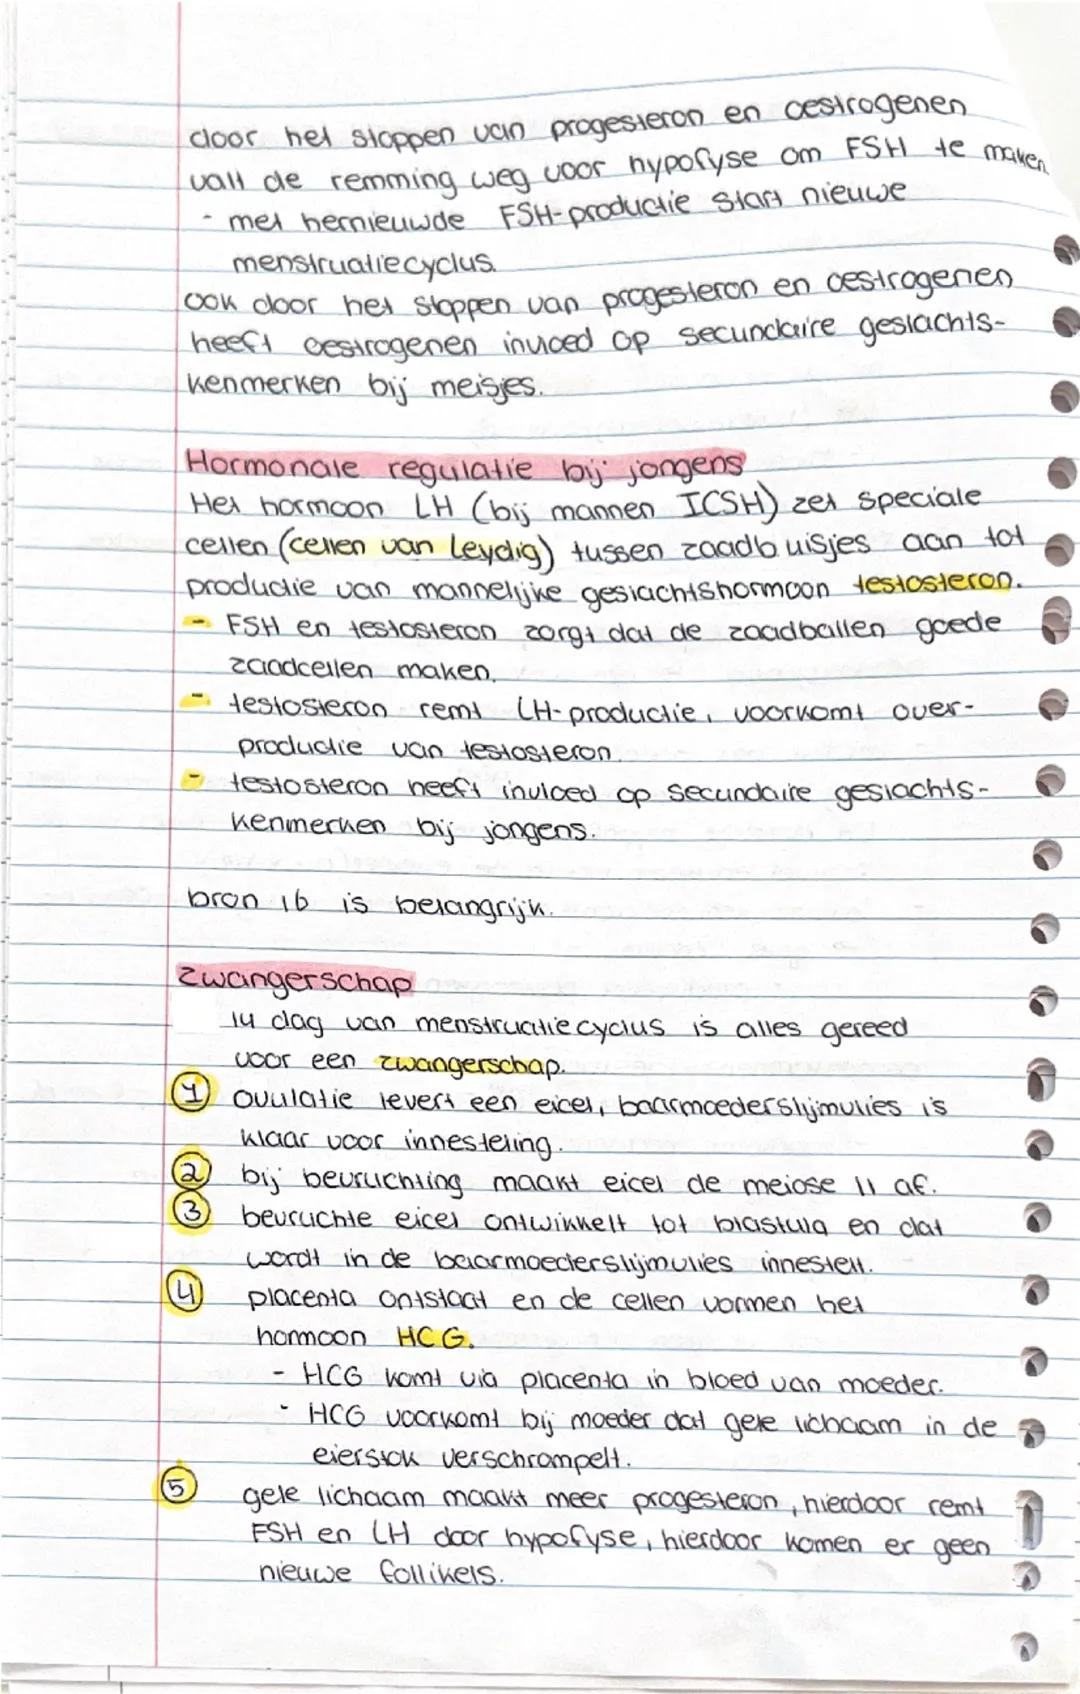 door het stoppen van progesteron en oestrogenen
valt de remming weg voor hypofyse om FSH te maken
- met hernieuwde FSH-productie start nieuwe
menstruatiecyclus.
ook door het stoppen van progesteron en oestrogenen
heeft oestrogenen invloed op secundaire geslachts-
kenmerken bij meisjes.
Hormonale regulatie bij jongens
Het hormoon LH (bij mannen ICSH) zet speciale
cellen (cellen van Leydig) tussen zaadbuisjes aan tot
productie van mannelijke geslachtshormoon testosteron.
- FSH en testosteron zorgt dat de zaadballen goede
zaadcellen maken.
- testosteron remt LH-productie, voorkomt over-
productie van testosteron.
- testosteron heeft invloed op secundaire geslachts-
kenmerken bij jongens.
bron 16 is belangrijk.
Zwangerschap
14 dag van menstruatiecyclus is alles gereed
voor een zwangerschap.
1 ovulatie levert een eicel, baarmoederslijmvlies is
klaar voor innesteling.
2 bij bevruchting maakt eicel de meiose II af.
3 bevruchte eicel ontwikkelt tot blastula en dat
wordt in de baarmoederslijmvlies innestelt.
4 placenta ontstaat en de cellen vormen het
hormoon HCG.
- HCG komt via placenta in bloed van moeder.
- HCG voorkomt bij moeder dat gele lichaam in de
eierstok verschrompelt.
5 gele lichaam maakt meer progesteron, hierdoor remt
FSH en LH door hypofyse, hierdoor komen er geen
nieuwe follikels.